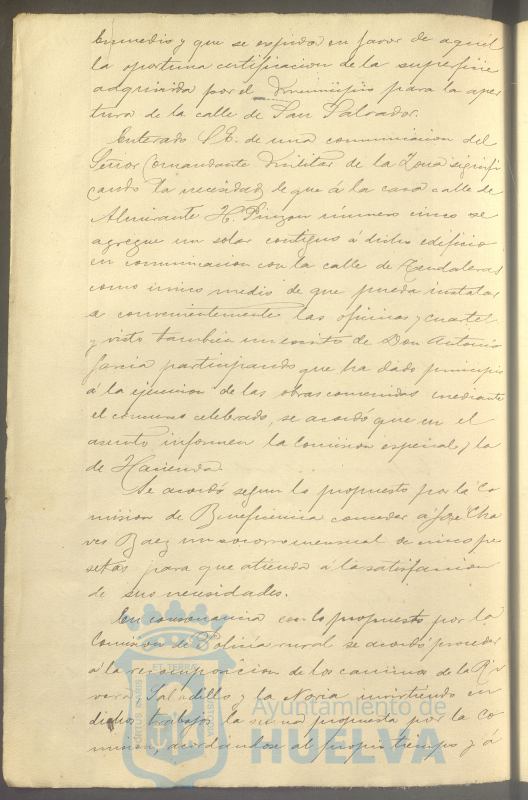 y que se expida en favor de aquel
la oportuna certificacion de la superficie
adquirida por el Municipio para la aper
tura de la calle de San Salvador.
Enterado S.E. de una comunicacion del
Señor Comandante Militar de la Zona signifi
cando la necesidad de que á la casa calle de
Almirante H. Pinzon número cinco se
agregue un solar contiguo á dicho edificio
en comunicacion con la calle de Tendaleras
como único medio de que pueda instalar
se convenientemente las oficinas y cuartel
y visto tambien un escrito de Don Antonio
Garcia participando que ha dado principio
á la ejecucion de las obras convenidas mediante
el concurso celebrado, se acordó que en el
asunto informen la Comision especial y la
de Hacienda.
Se acordó segun lo propuesto por la Co
mision de Beneficencia conceder á José Cha
ves Baez un socorro mensual de cinco pe
setas para que atienda á la satisfaccion
de sus necesidades.
En consonancia con lo propuesto por la
Comision de Policía rural se acordó proceder
á la recomposicion de los caminos de la Ri
vera, Saladillo y la Noria invirtiendo en
dichos trabajos la suma propuesta por la Co
mision, acordandose al propio tiempo y á
Ayuntamiento de
HUELVA